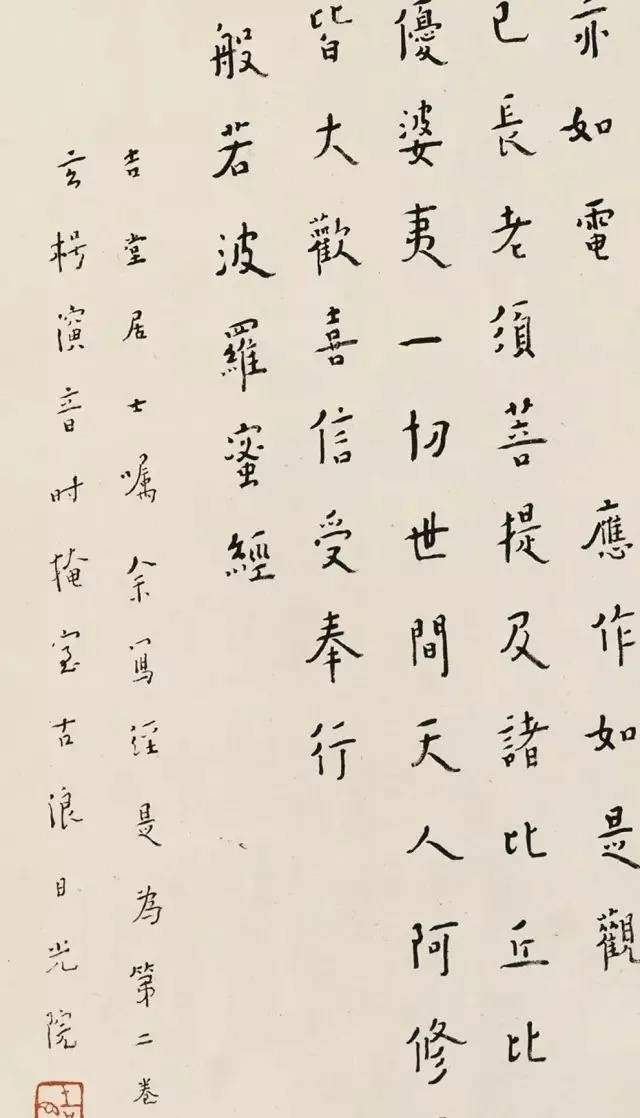 亦如電 應作如是觀
已長老須菩提及諸比丘比
優婆夷一切世間天人阿修
皆大歡喜信受奉行
般若波羅蜜經
吉堂居士嘱余寫經是為第二卷
玄楞演音时掩室古浪日光院